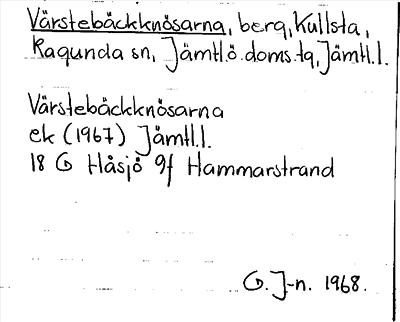 Värstebäckknösarna, berg, Kullsta,
Ragunda sn, Jämtl.ö.doms.tg, Jämtl.l.
Värstebäckknösarna
ek (1967) Jämtl.l.
18 G Håsjö 9f Hammarstrand
G. J-n. 1968.